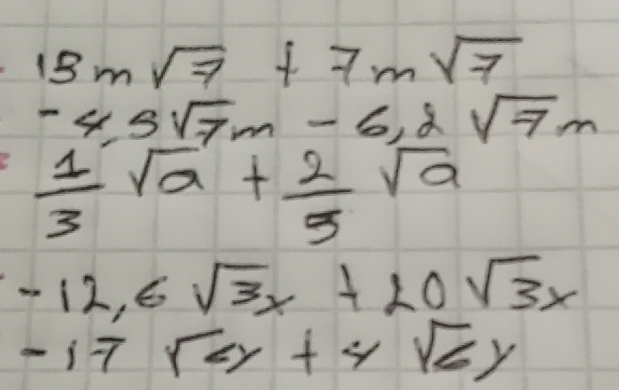 13m√7 + 7m√7
-4,5√7m - 6,2√7m
1/3 √a + 2/5 √a
-12,6√3x + 20√3x
-17√6y + 4√6y